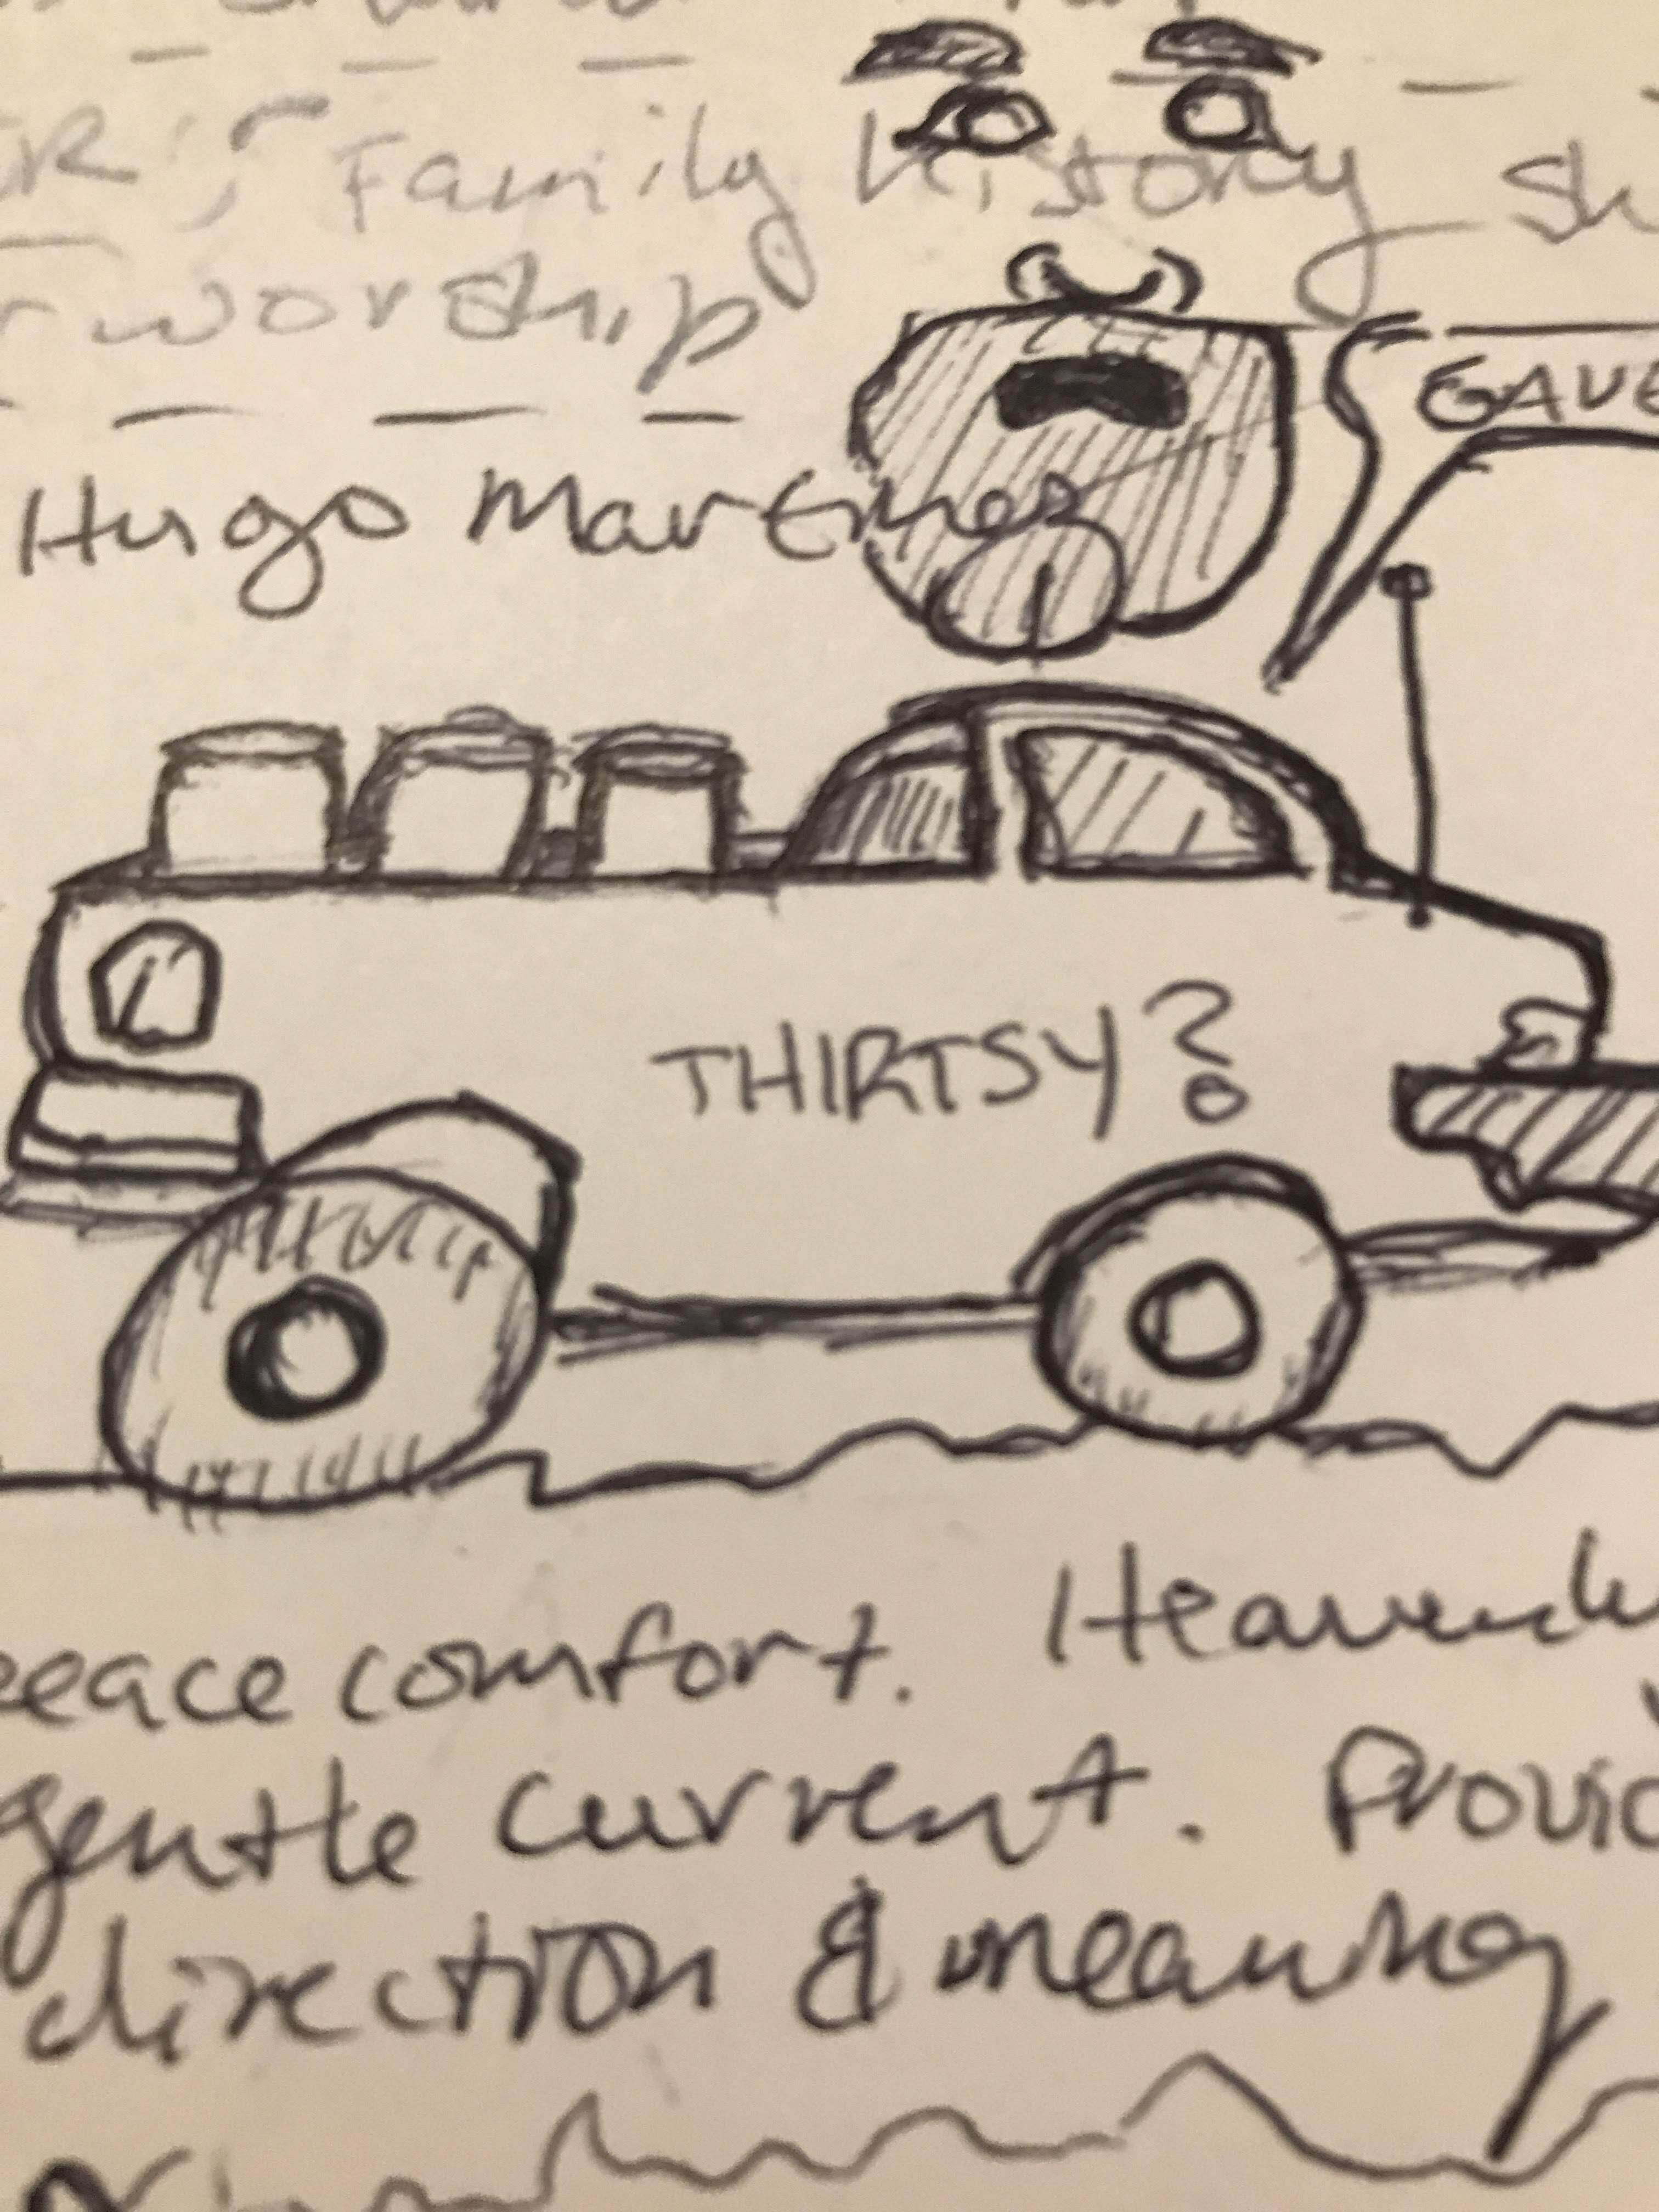 R; Family history Sh
r worship
GAVE
Hugo Martinez
THIRTSY?
peace comfort. Heavenly
gentle current. Provid
direction & meaning